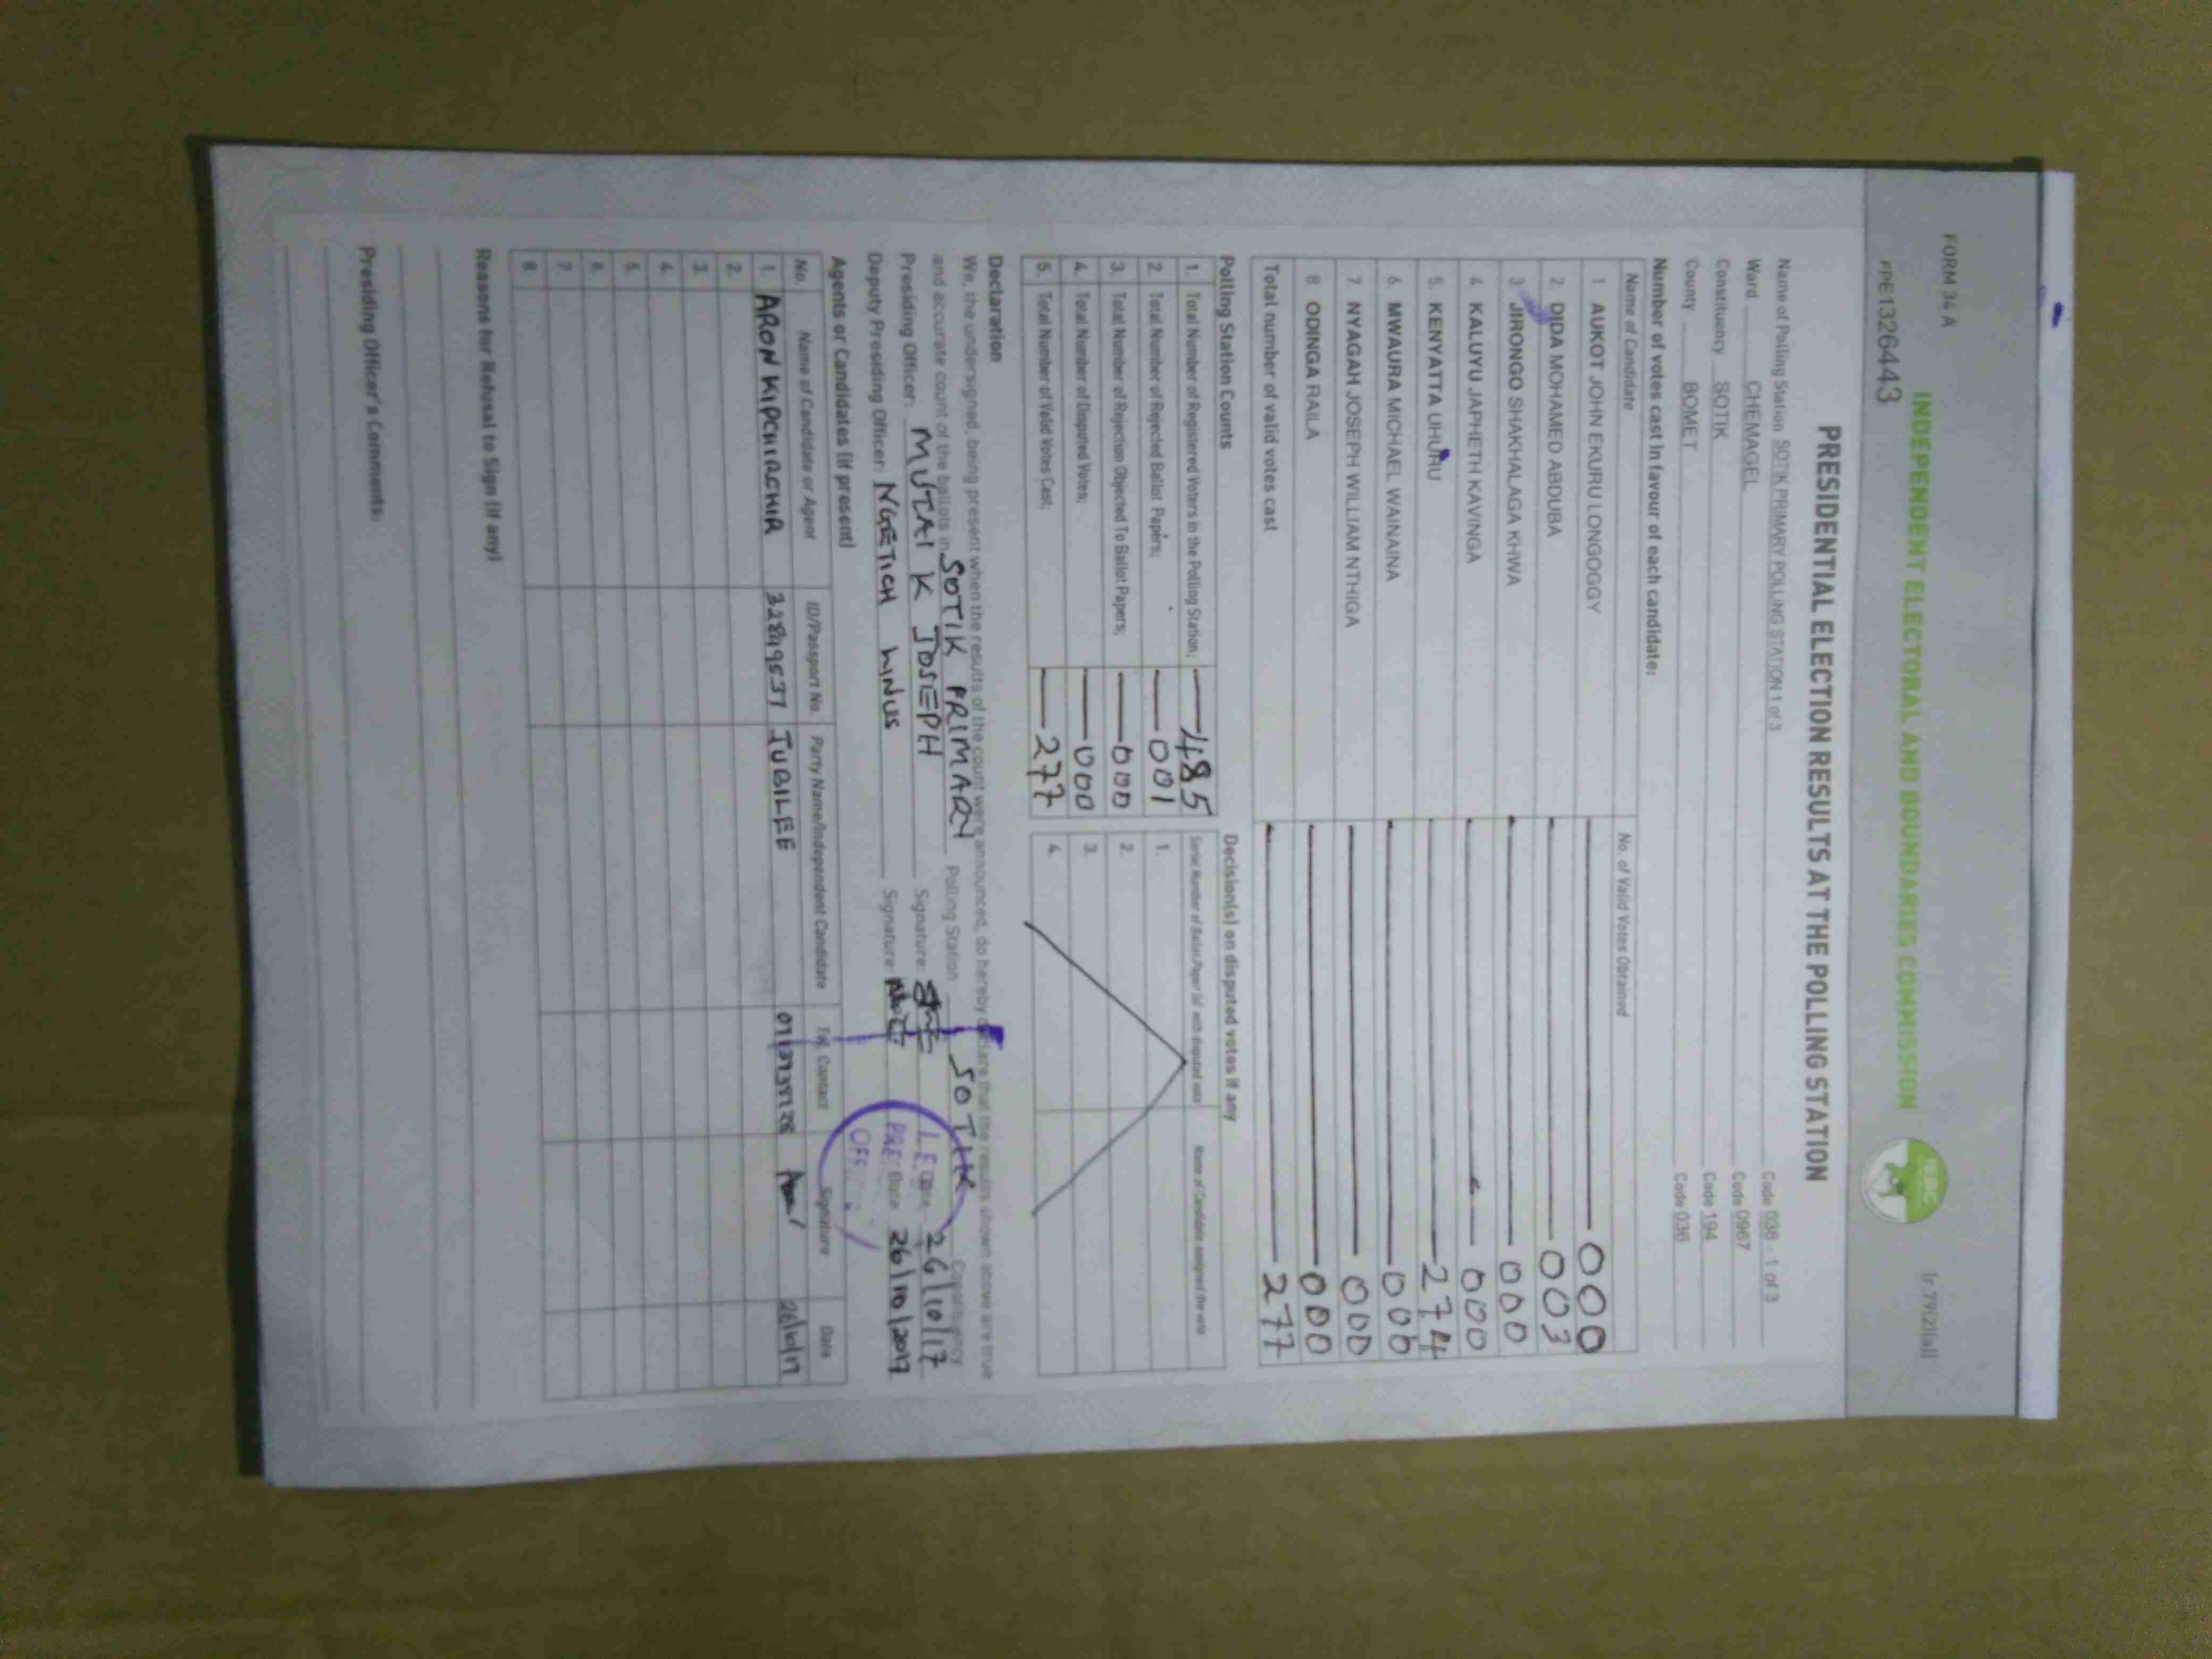 FORM 34 A
Ir.79(2)(a)
INDEPENDENT ELECTORAL AND BOUNDARIES COMMISSION
IEBC
PPE1326443
PRESIDENTIAL ELECTION RESULTS AT THE POLLING STATION
Name of Polling Station SOTIK PRIMARY POLLING STATION 1 of 3 Code 038 - 1 of 3
Ward CHEMAGEL Code 0967
Constituency SOTIK Code 194
County BOMET Code 036
Number of votes cast in favour of each candidate:
Name of Candidate No. of Valid Votes Obtained
1 AUKOT JOHN EKURU LONGOGGY 000
2 DIDA MOHAMED ABDUBA 003
3 JIRONGO SHAKHALAGA KHWA 000
4 KALUYU JAPHETH KAVINGA 000
5. KENYATTA UHURU 274
6 MWAURA MICHAEL WAINAINA 000
7. NYAGAH JOSEPH WILLIAM NTHIGA 000
8 ODINGA RAILA 000
Total number of valid votes cast 277
Polling Station Counts
1. Total Number of Registered Voters in the Polling Station; 485
2. Total Number of Rejected Ballot Papers; 001
3. Total Number of Rejection Objected To Ballot Papers; 000
4. Total Number of Disputed Votes; 000
5. Total Number of Valid Votes Cast; 277
Decision(s) on disputed votes if any
Serial Number of Ballot Paper (s) with disputed vote Name of Candidate assigned the vote
1.
2.
3.
4.
Declaration
We, the undersigned, being present when the results of the count were announced, do hereby declare that the results shown above are true
and accurate count of the ballots in SOTIK PRIMARY Polling Station SOTIK Constituency
Presiding Officer: MUTAI K JOSEPH Signature: Date 26/10/17
Deputy Presiding Officer: NGETICH LINUS Signature: Date 26/10/2017
Agents or Candidates (if present)
No. Name of Candidate or Agent ID/Passport No. Party Name/Independent Candidate Tel. Contact Signature Date
1. ARON KIPCHIRCHIR 32849537 JUBILEE 26/10/17
2.
3.
4.
5.
6.
7.
8.
Reasons for Refusal to Sign (if any)
Presiding Officer's Comments: